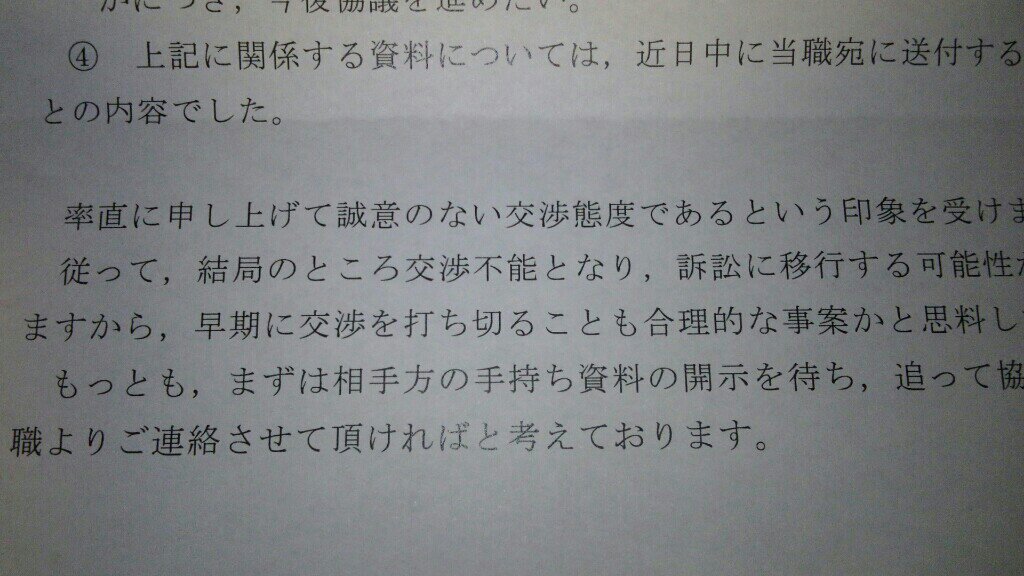 かにつき，今後協議を進めたい。
④ 上記に関係する資料については，近日中に当職宛に送付する
との内容でした。
率直に申し上げて誠意のない交渉態度であるという印象を受けま
従って，結局のところ交渉不能となり，訴訟に移行する可能性が
ますから，早期に交渉を打ち切ることも合理的な事案かと思料し
もっとも，まずは相手方の手持ち資料の開示を待ち，追って協
職よりご連絡させて頂ければと考えております。